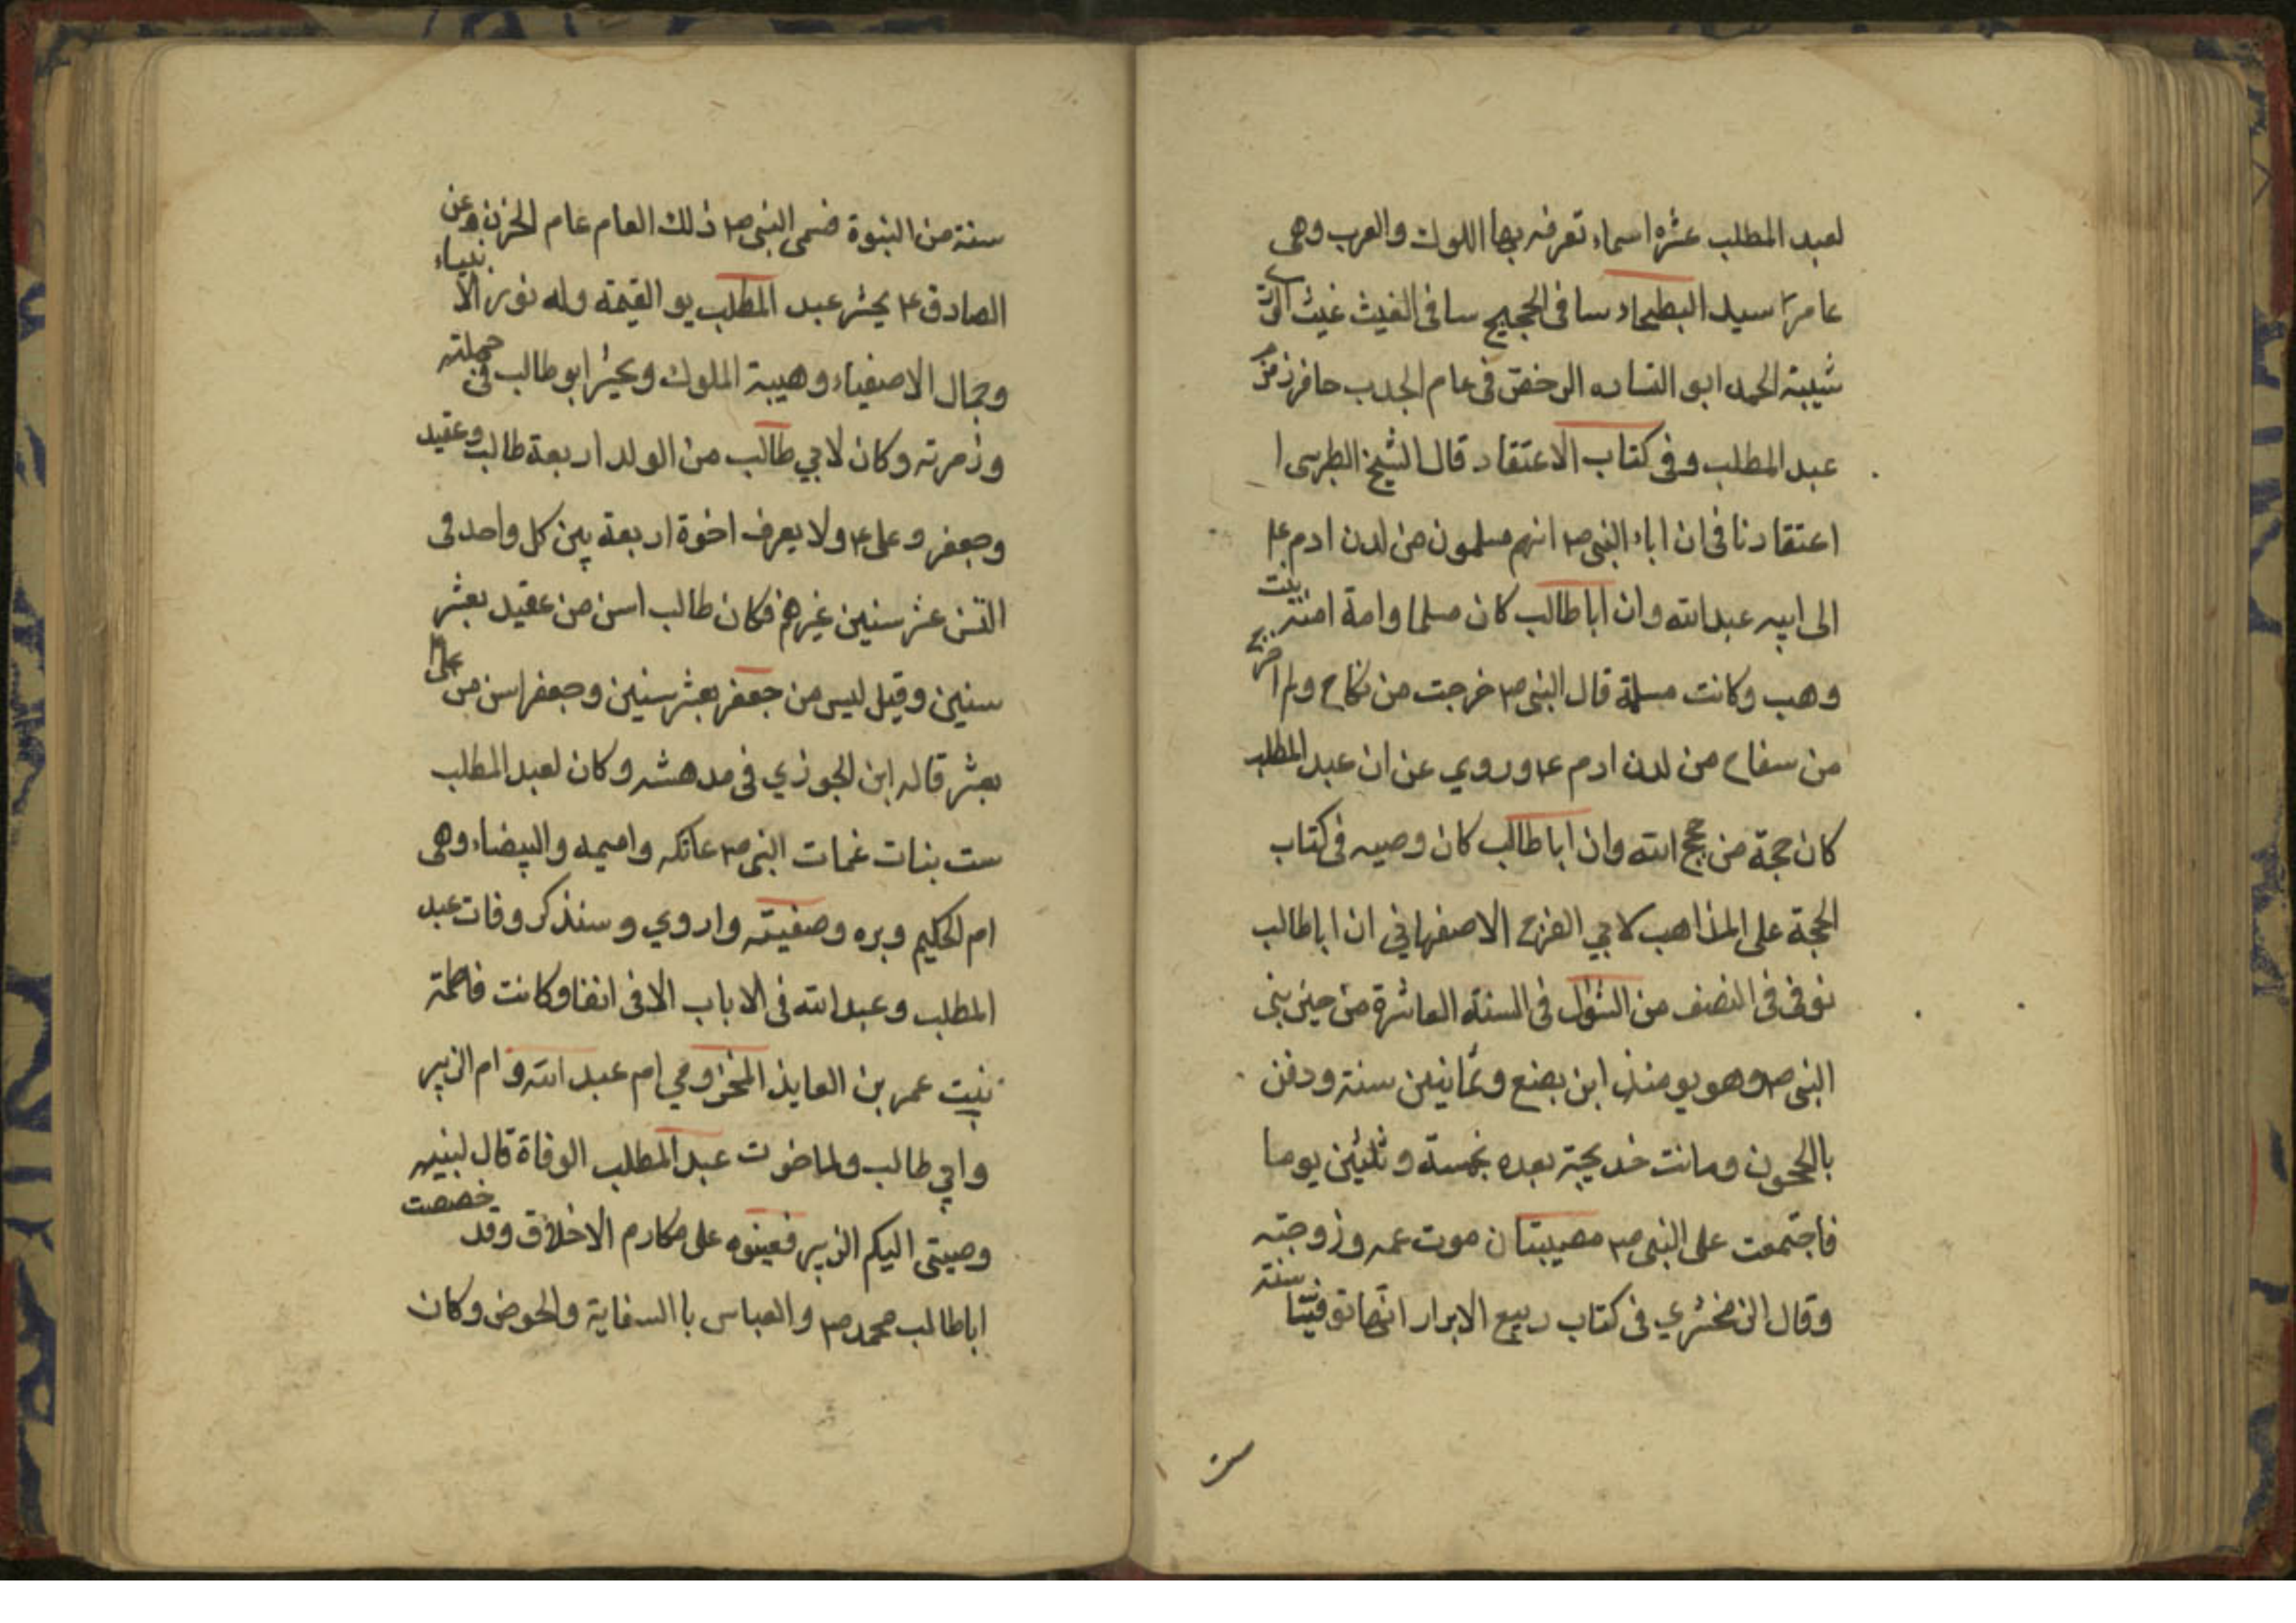 لعبد المطلب عشره اسماء تعرفه بها اللوك والعرب وهى
عامر سيد البطحاء ساقى الحجيج ساقى الغيث غيث
شيبة الحمد ابو الساده العشرة فى عام الجدب حافر زمزم
عبد المطلب وفى كتاب الاعتقاد قال الشيخ الطبرسى ا
اعتقادنا فى ان اباء النبى ص انهم مسلمون من لدن ادم ع
الى ابيه عبد الله وان ابا طالب كان مسلما وامة امنة بنت
وهب وكانت مسلمة قال النبى ص خرجت من نكاح ولم اخرج
من سفاح من لدن ادم ع وروي عن ان عبد المطلب
كان حجة من حجج الله وان ابا طالب كان وصيه فى كتاب
الحجة على المذاهب لابي الفرج الاصفهاني ان ابا طالب
توفى فى النصف من الشوال فى السنة العاشرة من حين نبى
النبى ص وهو يومئذ ابن بضع وثمانين سنة ودفن
بالحجون وماتت خديجة بعده بخمسة وثلثين يوما
فاجتمعت على النبى ص مصيبتان موت عمه وزوجته
وقال الزمخشري فى كتاب ربيع الابرار انهما توفيتا سنة
ست
سنة من النبوة فسمى النبى ص ذلك العام عام الحزن وعن
الصادق ع يحشر عبد المطلب يو القيمة وله نور الانبياء
وجمال الاصفياء وهيبة الملوك ويحشر ابو طالب فى جملته
وزمرته وكان لابي طالب من الولد اربعة طالب وعقيد
وجعفر وعلى ع ولا يعرف اخوة اربعة بين كل واحد فى
السن عشر سنين غيرهم فكان طالب اسن من عقيد بعشر
سنين وقيل ليس من جعفر بعشر سنين وجعفر اسن من على ع
بعشر قاله ابن الجوزي فى مدهشه وكان لعبد المطلب
ست بنات عمات النبى ص عاتكه واميمه والبيضاء وهى
ام الحكيم وبره وصفيته واروي وسنذكر وفات عبد
المطلب وعبد الله فى الاباب الافى انفا وكانت فاطمة
بنيت عمر بن العايذ المخزومي ام عبد الله وام الزبير
وابي طالب ولما ضرت عبد المطلب الوفاة قال لبنيه
وصيتى اليكم الزبير فعينوه على مكارم الاخلاق وقد خصصت
ابا طالب محمد ص والعباس با السقاية والحوض وكان